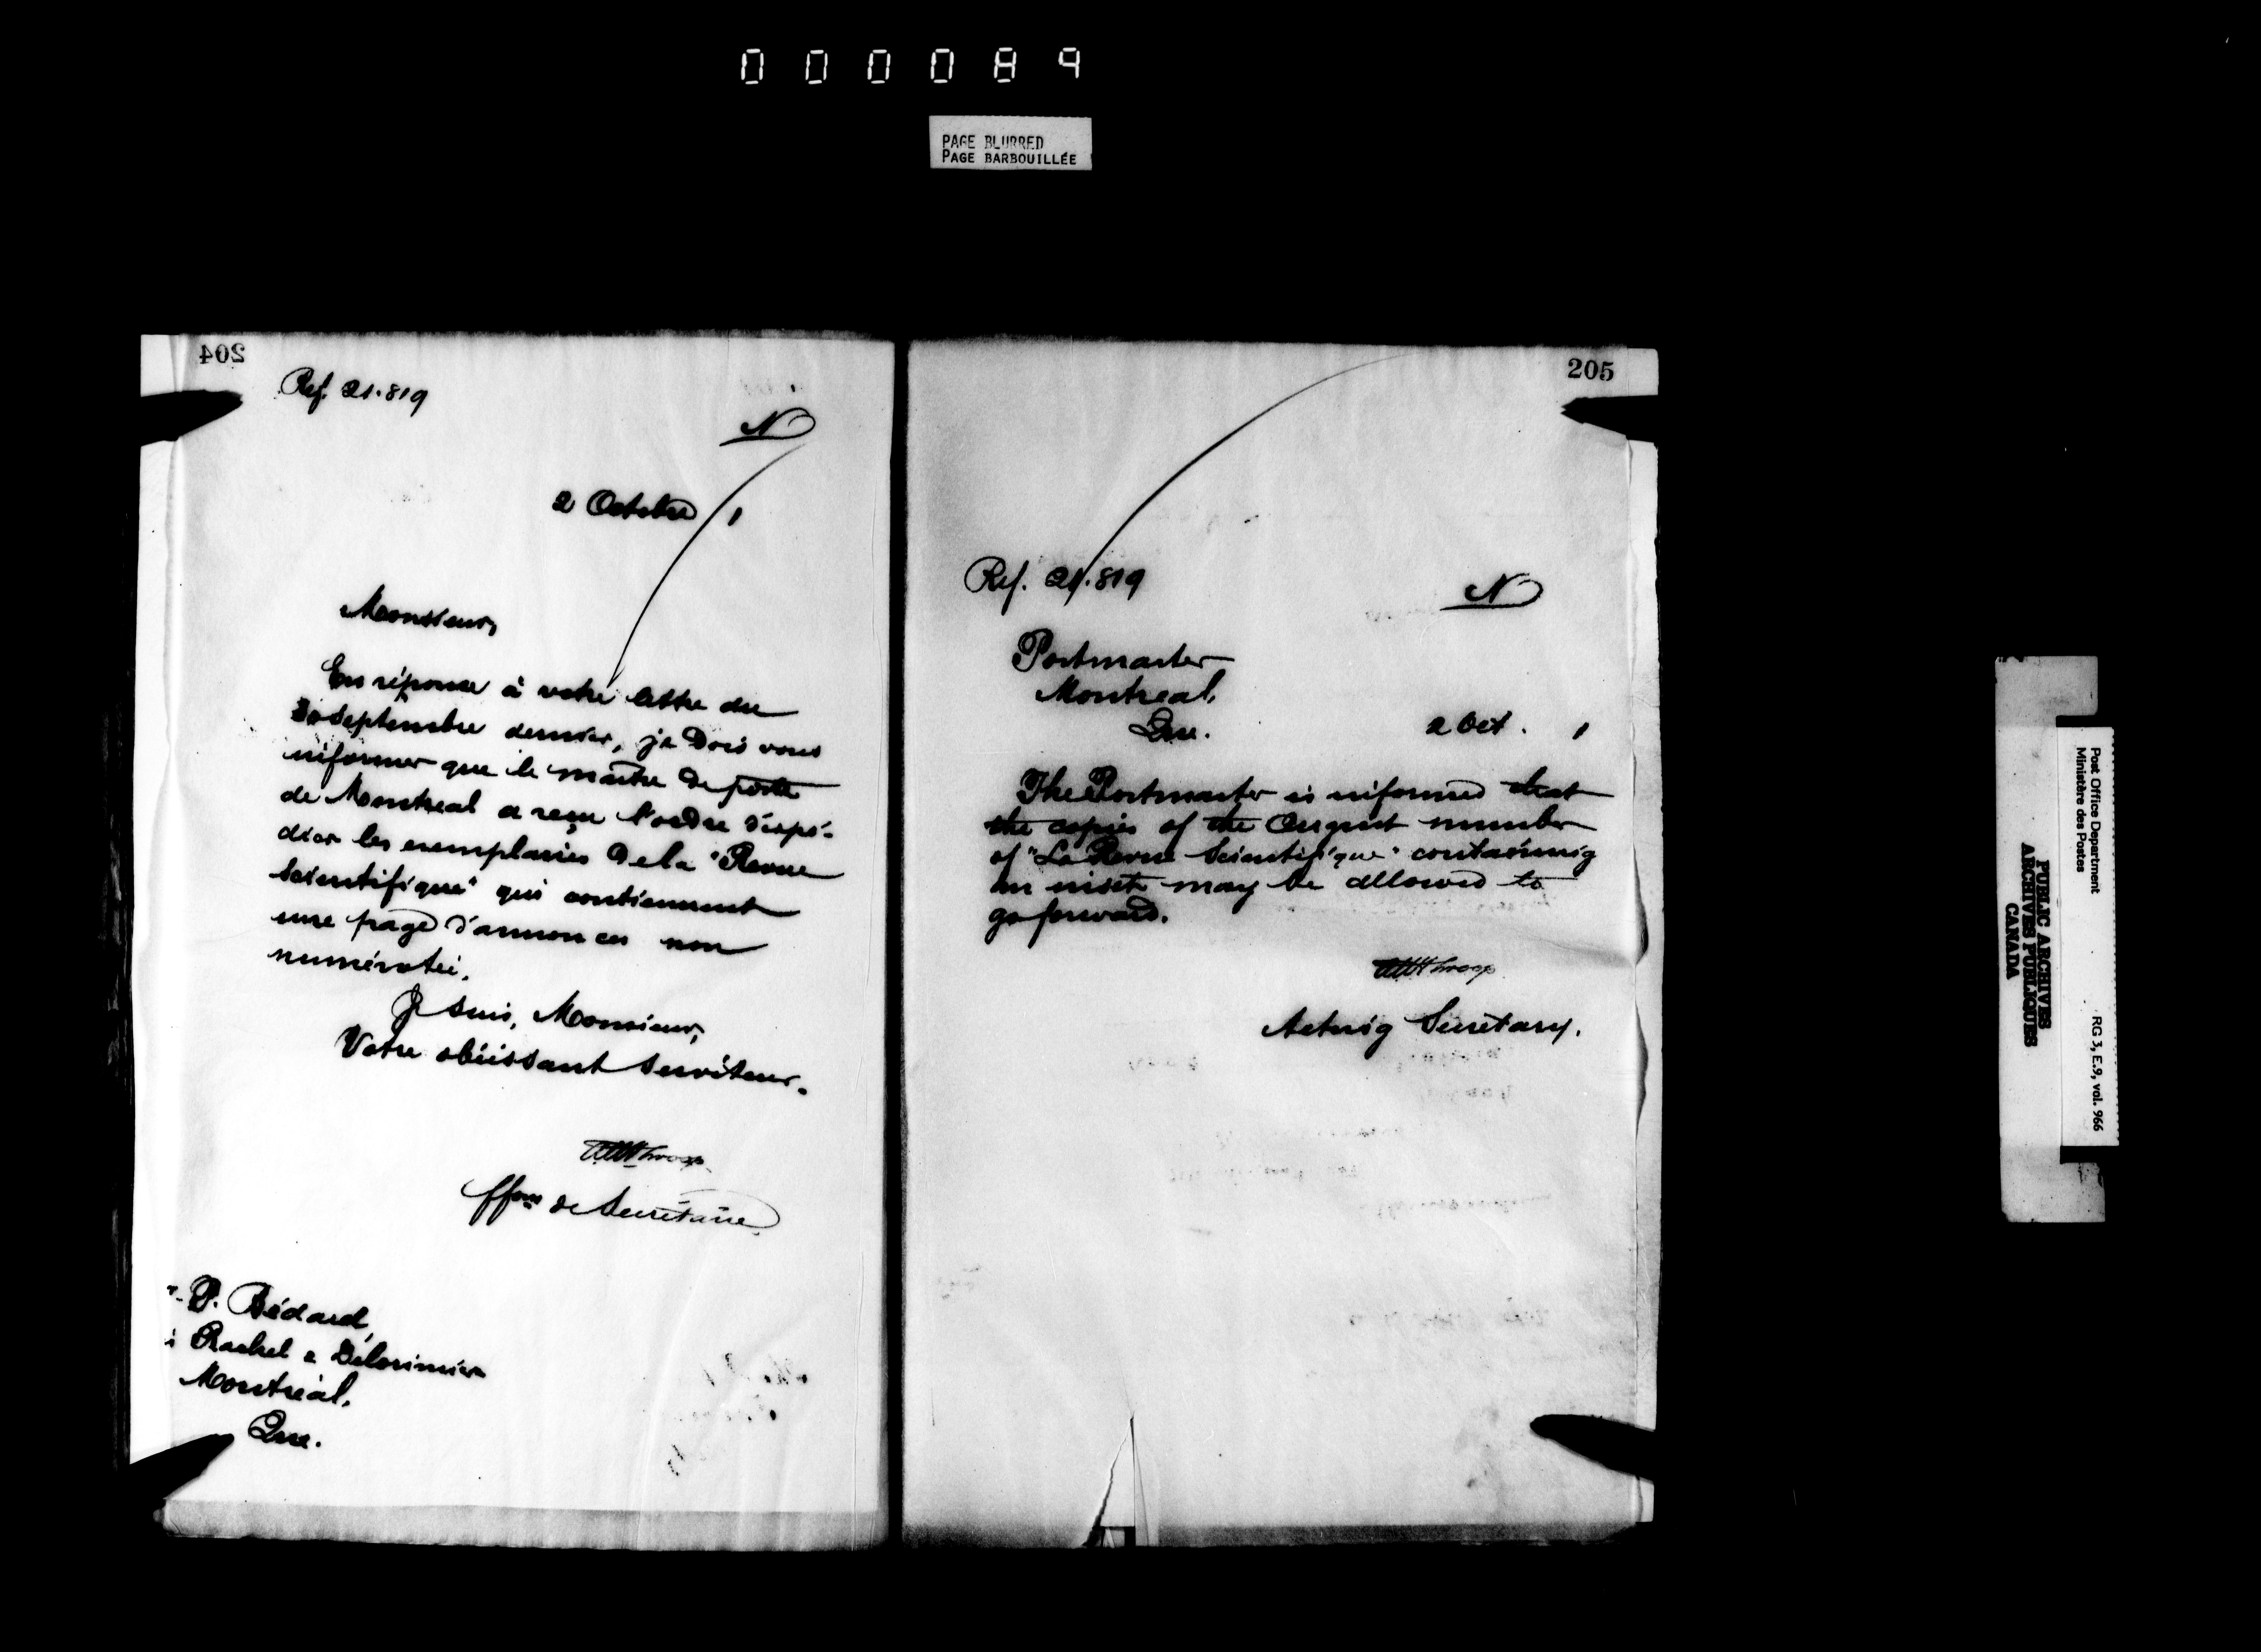 000089
PAGE BLURRED
PAGE BARBOUILLÉE
204
Ref. 21.819
N
2 Octobre 1
Monsieur,
En réponse à votre lettre du
30 Septembre dernier, je dois vous
informer que le maître de poste
de Montreal a reçu l'ordre d'expé-
dier les exemplaires de la "Revue
Scientifique" qui contiennent
une page d'annonces non
numérotée.
Je suis, Monsieur,
Votre obéissant serviteur.
Throop
ffons de Secrétaire
P. Bédard,
Rachel & Delorimier
Montréal,
Que.
205
Ref. 21.819
N
Postmaster
Montreal,
Que.
2 Oct. 1
The Postmaster is informed that
the copies of the August number
of "La Revue Scientifique" containing
an inset may be allowed to
go forward.
Throop
Acting Secretary.
Post Office Department
Ministère des Postes
RG 3, E.9, vol. 966
PUBLIC ARCHIVES
ARCHIVES PUBLIQUES
CANADA